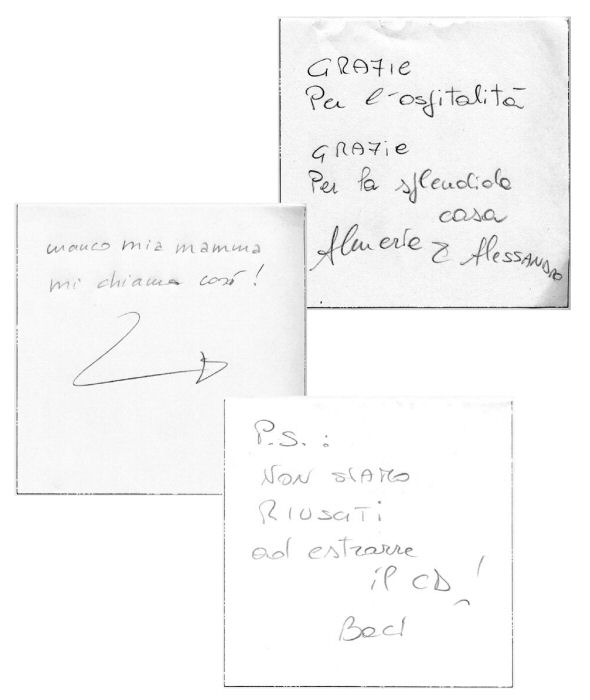 GRAZIE
Per l'ospitalità
GRAZIE
Per la splendida
casa
Almerie & Alessandro
manco mia mamma
mi chiama così!
P.S.:
NON SIAMO
RIUSCITI
ad estrarre
il CD!
Baci